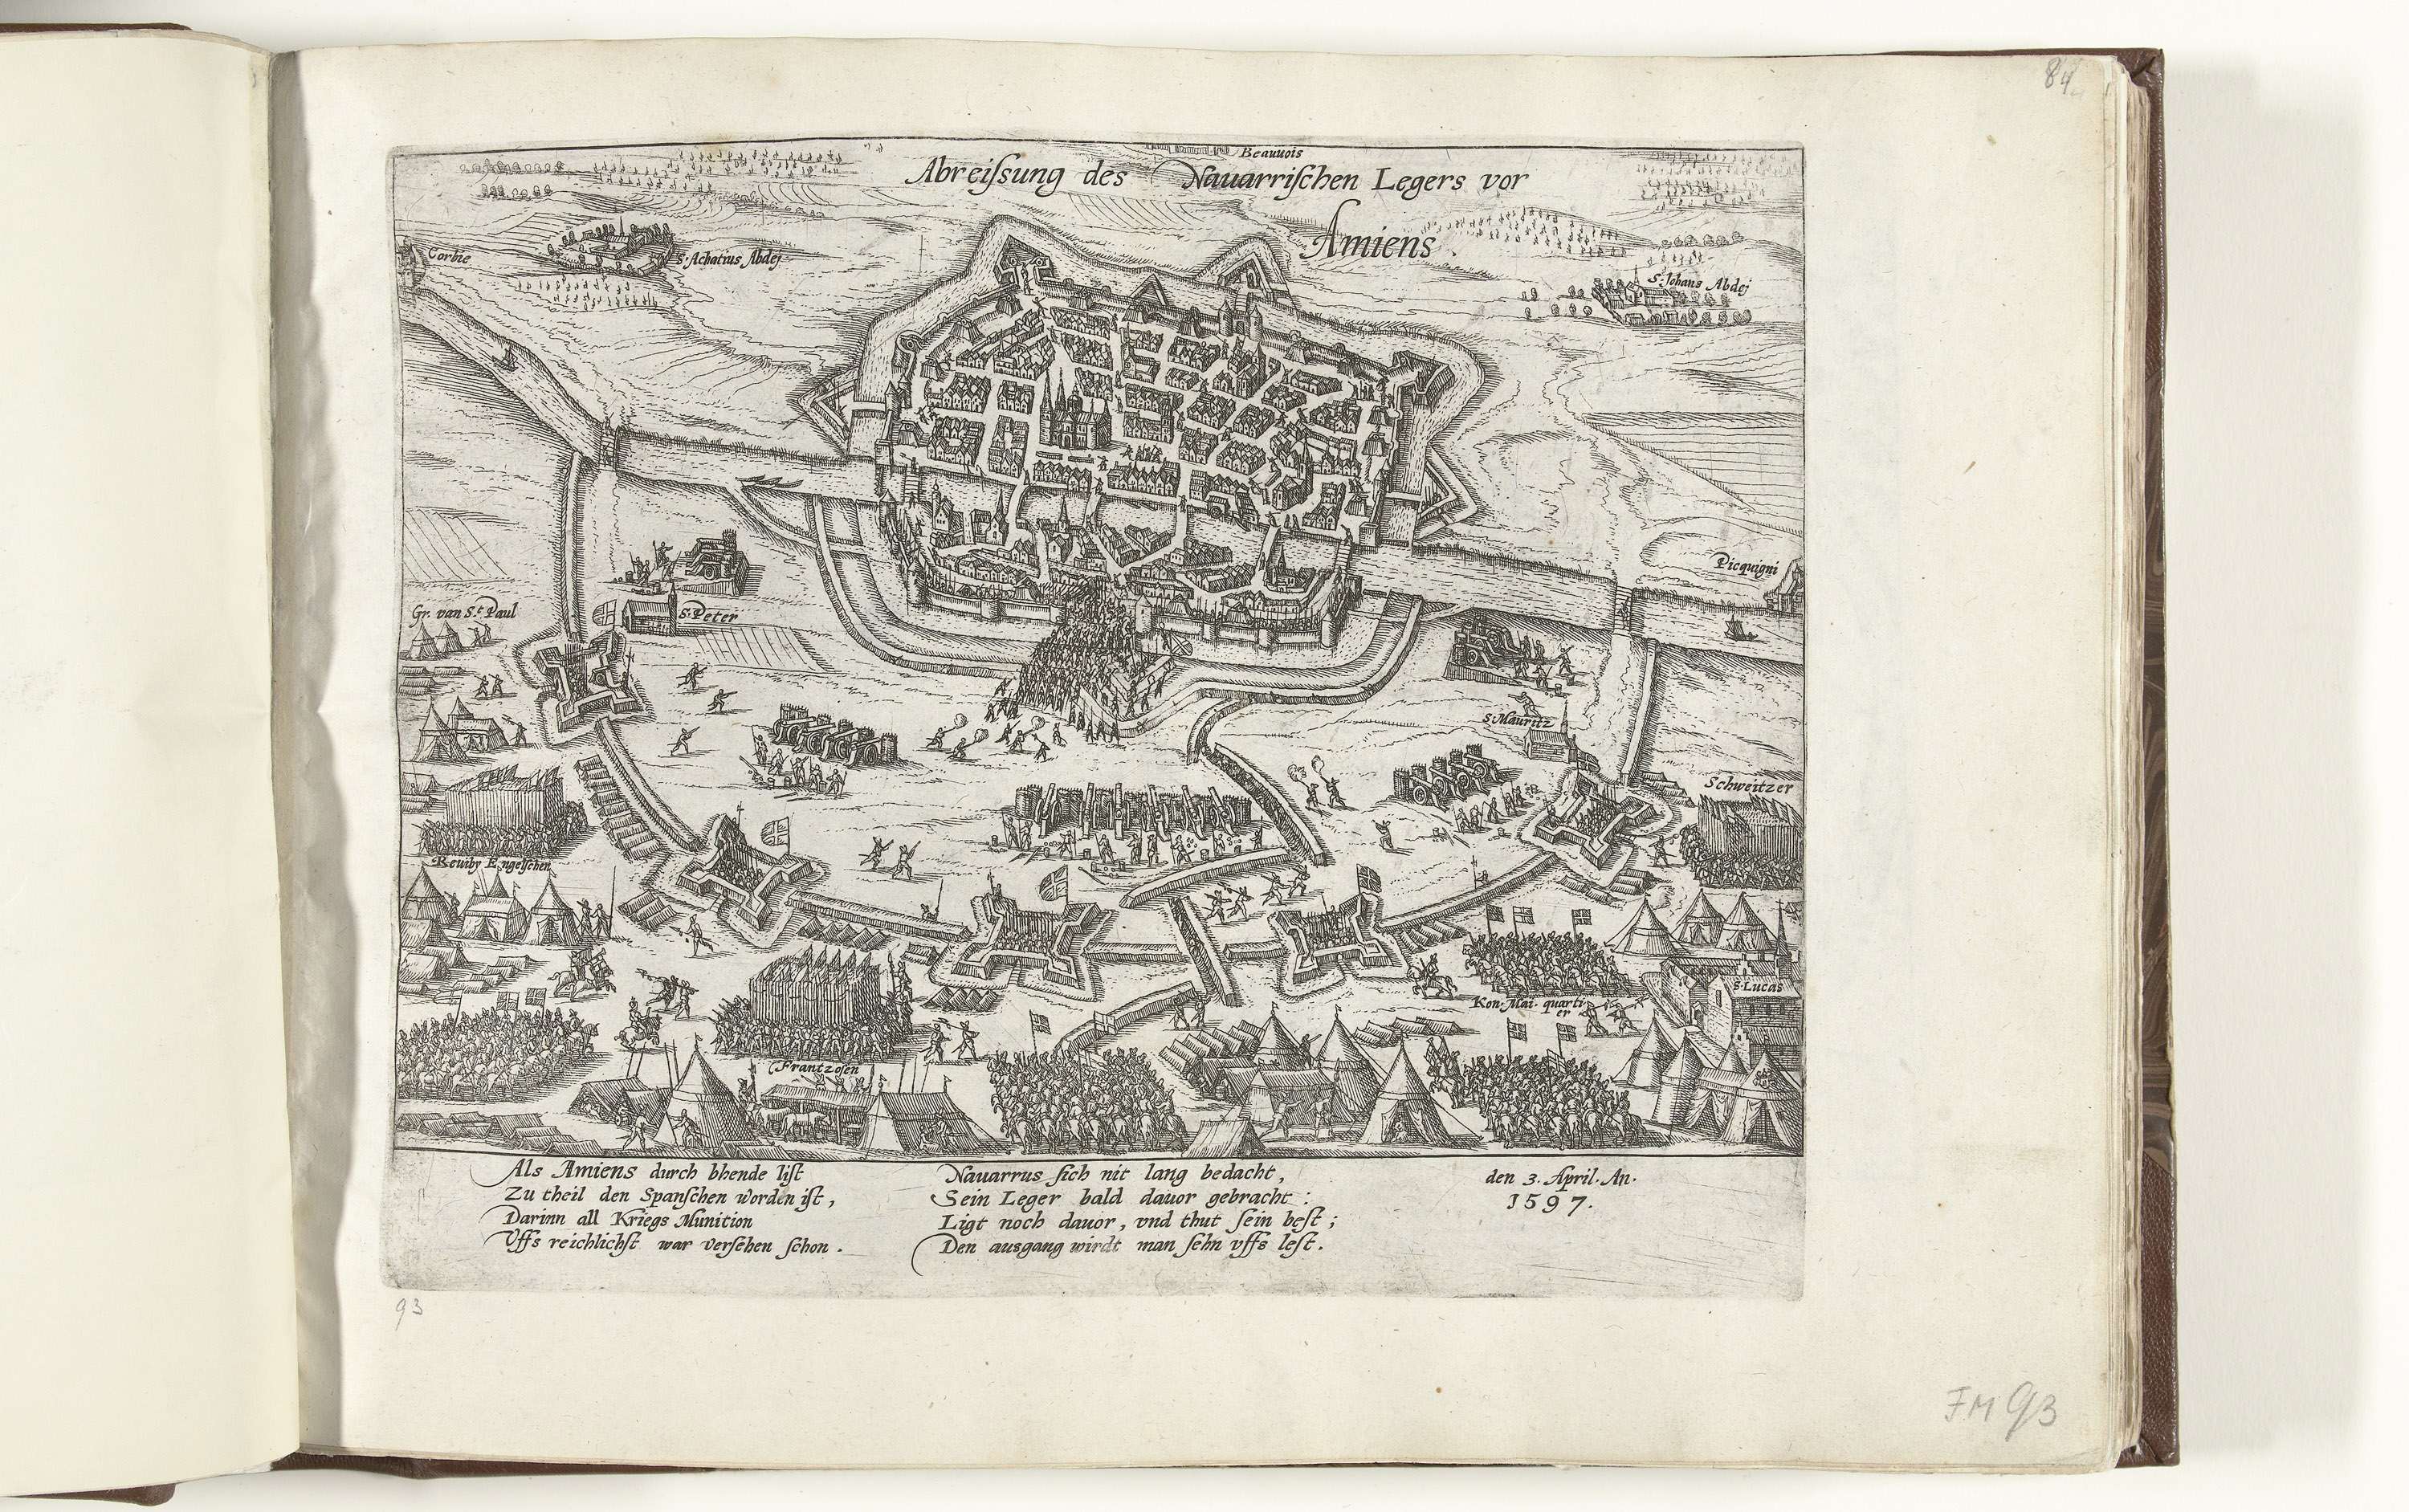 84
Beauuois
Abreiſsung des Nauarriſchen Legers vor
Amiens.
Corbie
S. Achatius Abdej
S. Johans Abdej
Picquigni
Gr. van S.t Paul
S. Peter
S. Mauritz
Schweitzer
Engelſchen
S. Lucas
Kon. Mai. quarti
er
Frantzoſen
Als Amiens durch bhende liſt
Zu theil den Spanſchen worden iſt,
Darinn all Kriegs Munition
Vffs reichlichſt war verſehen ſchon.
Nauarrus ſich nit lang bedacht,
Sein Leger bald dauor gebracht:
Ligt noch dauor, vnd thut ſein beſt;
Den ausgang wirdt man ſehn vffs leſt.
den 3. April. An.
1597.
93
FM 93